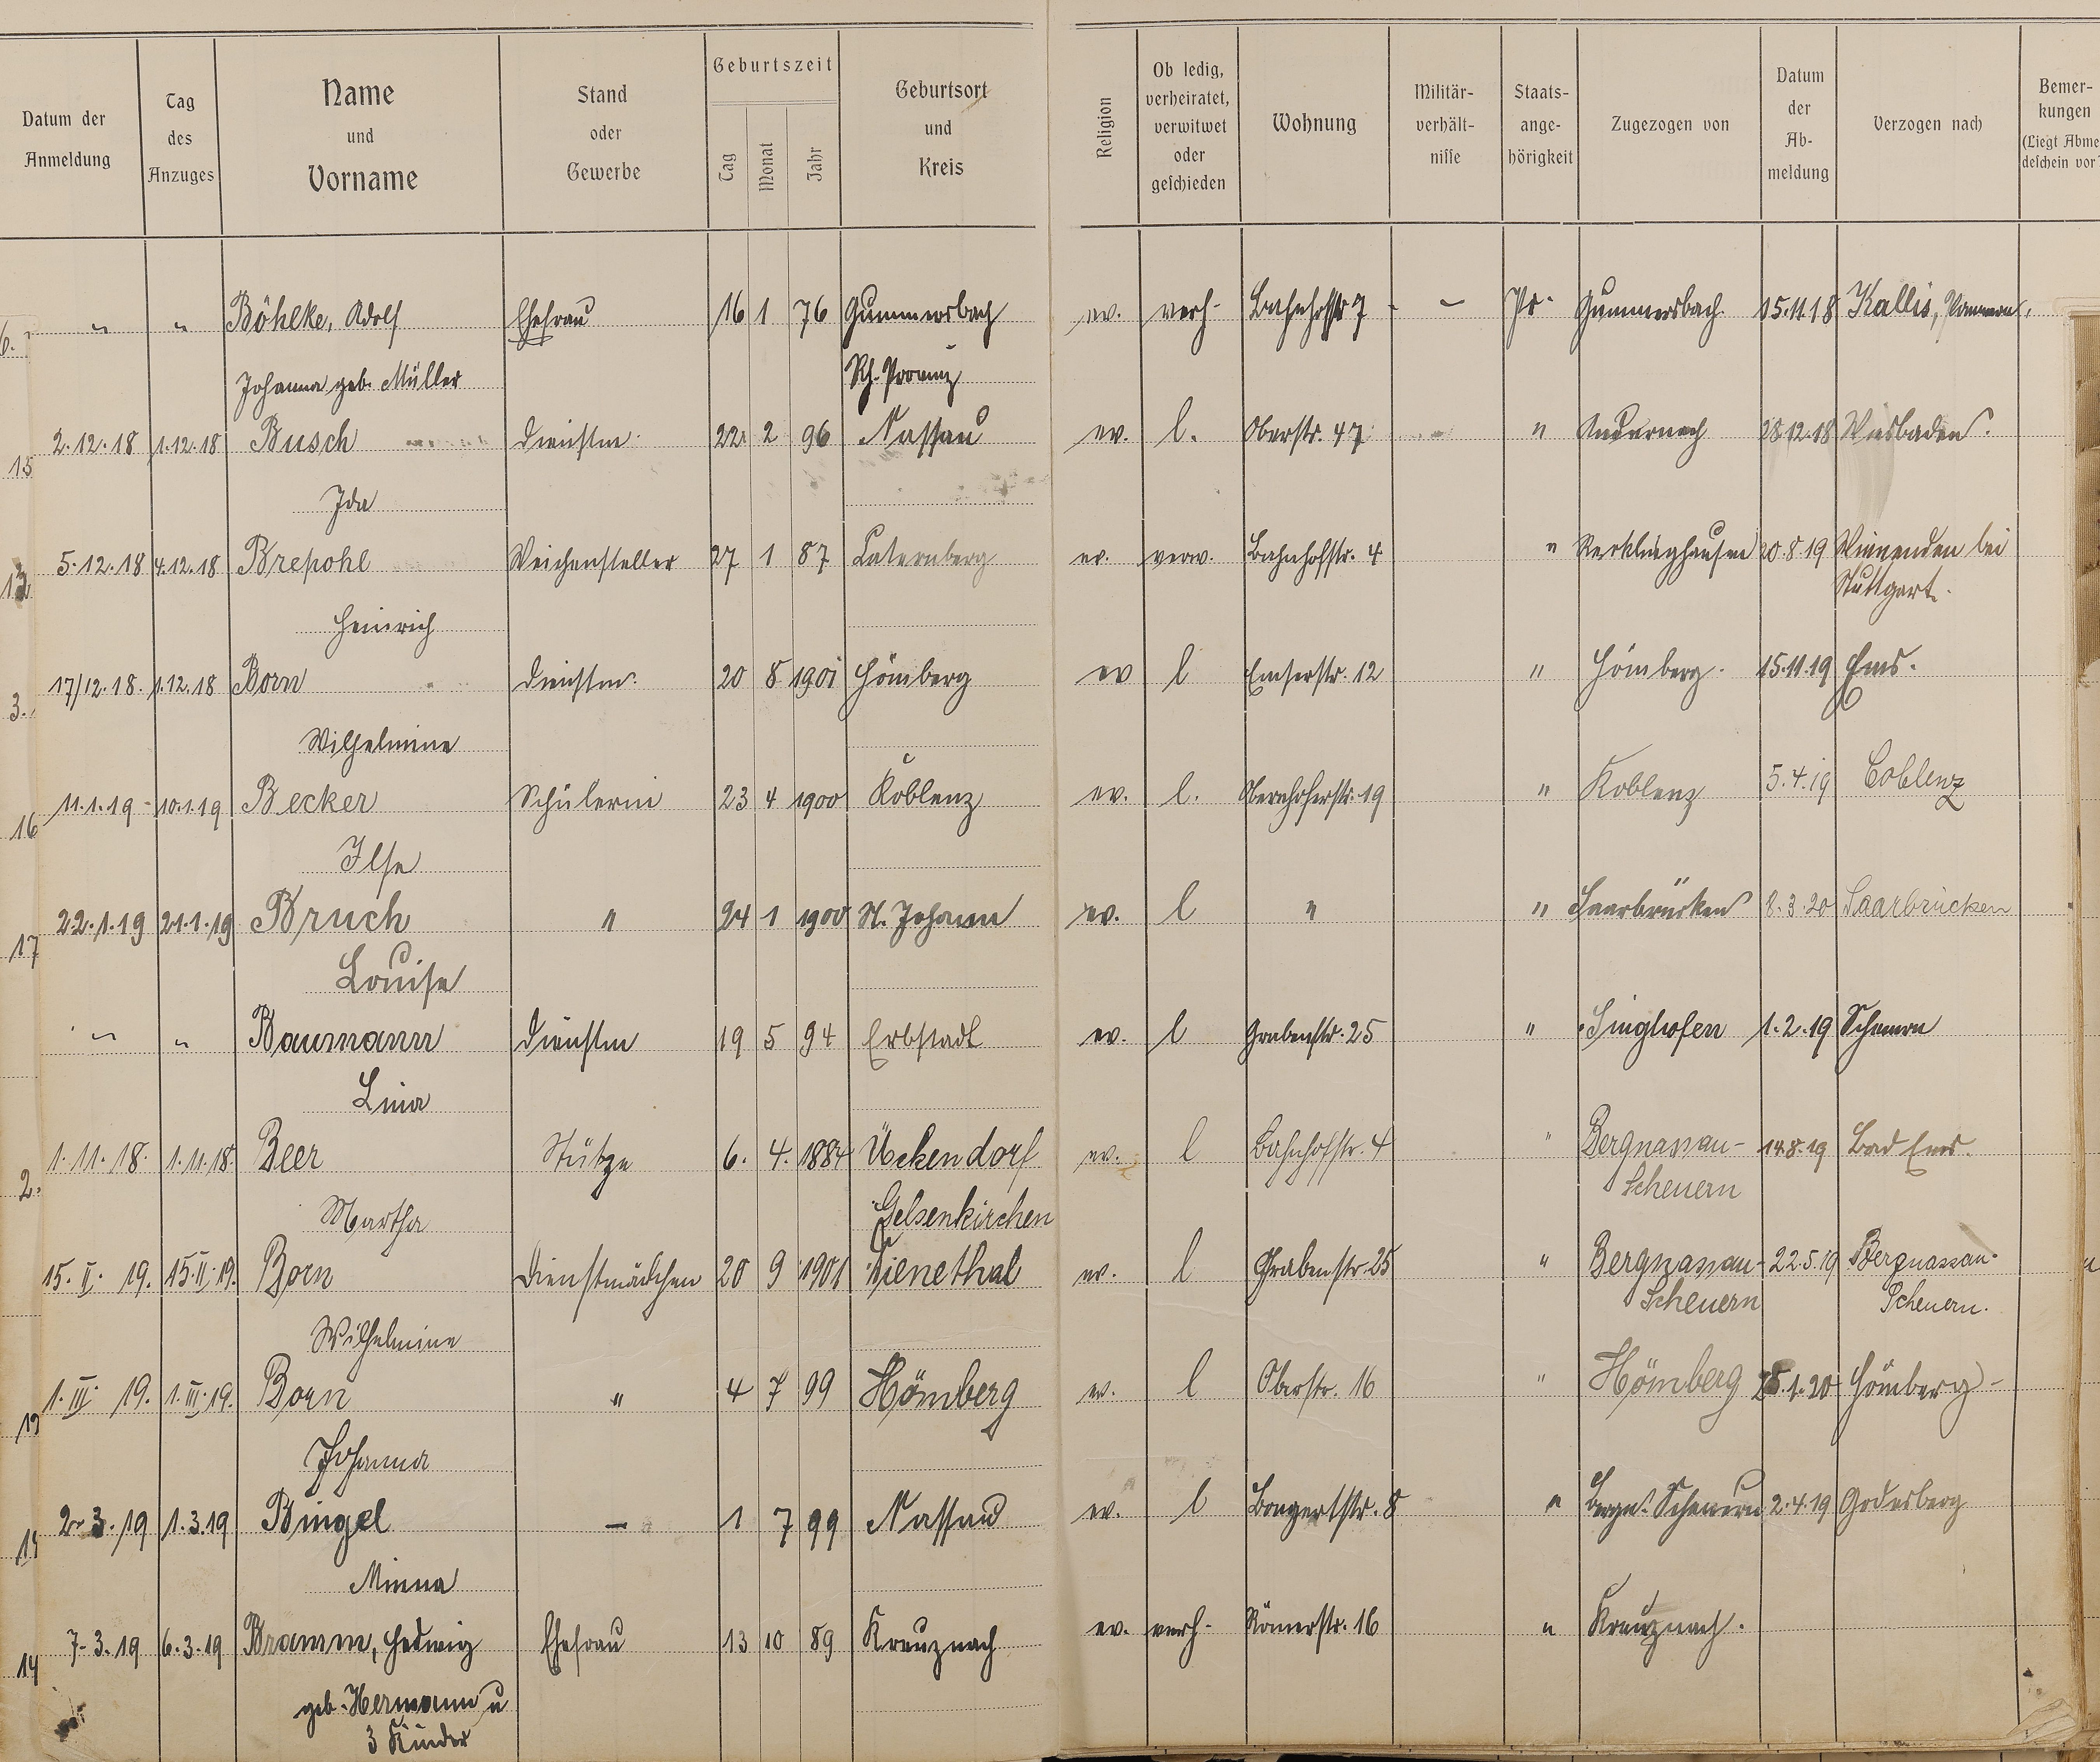 Datum der Anmeldung | Tag des Anzuges | Name und Vorname | Stand oder Gewerbe | Geburtszeit Tag Monat Jahr | Geburtsort und Kreis | Religion | Ob ledig, verheiratet, verwitwet oder geschieden | Wohnung | Militär-verhält-nisse | Staats-ange-hörigkeit | Zugezogen von | Datum der Ab-meldung | Verzogen nach | Bemer-kungen (Liegt Abme deschein vor
" " Böhlke, Adolf Ehefrau 16 1 76 Gummersbach ev. verh. Bahnhofstr 7 - Pr. Gummersbach 15.11.18 Kallis, Pommern
Johanna geb. Müller Rh. Provinz
2.12.18 1.12.18 Busch Dienstm. 22 2 96 Nassau ev. l. Oberstr. 47 " Andernach 28.12.18 Wiesbaden.
Ida
5.12.18 4.12.18 Brepohl Weichensteller 27 1 87 Caternberg ev. verw. Bahnhofstr. 4 " Recklinghausen 20.8.19 Winnenden bei
Stuttgart.
Heinrich
17/12.18. 1.12.18 Born Dienstm. 20 8 1901 Hömberg ev l Emserstr. 12 " Hömberg. 15.11.19 Ems.
Wilhelmine
11.1.19 10.1.19 Becker Schülerin 23 4 1900 Koblenz ev. l. Obernhoferstr. 19 " Koblenz 5.4.19 Coblenz
Ilse
22.1.19 21.1.19 Bruch " 24 1 1900 St. Johann ev. l " " Saarbrücken 8.3.20 Saarbrücken
Louise
" " Baumann Dienstm 19 5 94 Erbstadt ev. l Grabenstr. 25 " Singhofen 1.2.19 Scheuern
Lina
1.11.18. 1.11.18. Beer Stütze 6. 4. 1884 Ückendorf ev. l Bahnhofstr. 4 " Bergnassau- 14.8.19 Bad Ems.
Scheuern
Martha Gelsenkirchen
15. II. 19. 15.II.19. Born Dienstmädchen 20 9 1901 Dienethal ev. l Grabenstr. 25 " Bergnassau- 22.5.19 Bergnassau-
Scheuern Scheuern.
Wilhelmine
1. III. 19. 1.III.19. Born " 4 7 99 Hömberg ev. l Oberstr. 16 " Hömberg .1.20 Hömberg
Johanna
2.3.19 1.3.19 Bingel — 1 7 99 Nassau ev. l Bongertstr. 8 " Bergn. Scheuern 2.4.19 Godesberg
Minna
7.3.19 6.3.19 Bramm, Hedwig Ehefrau 13 10 89 Kreuznach ev. verh. Römerstr. 16 " Kreuznach.
geb. Hermann u
3 Kinder